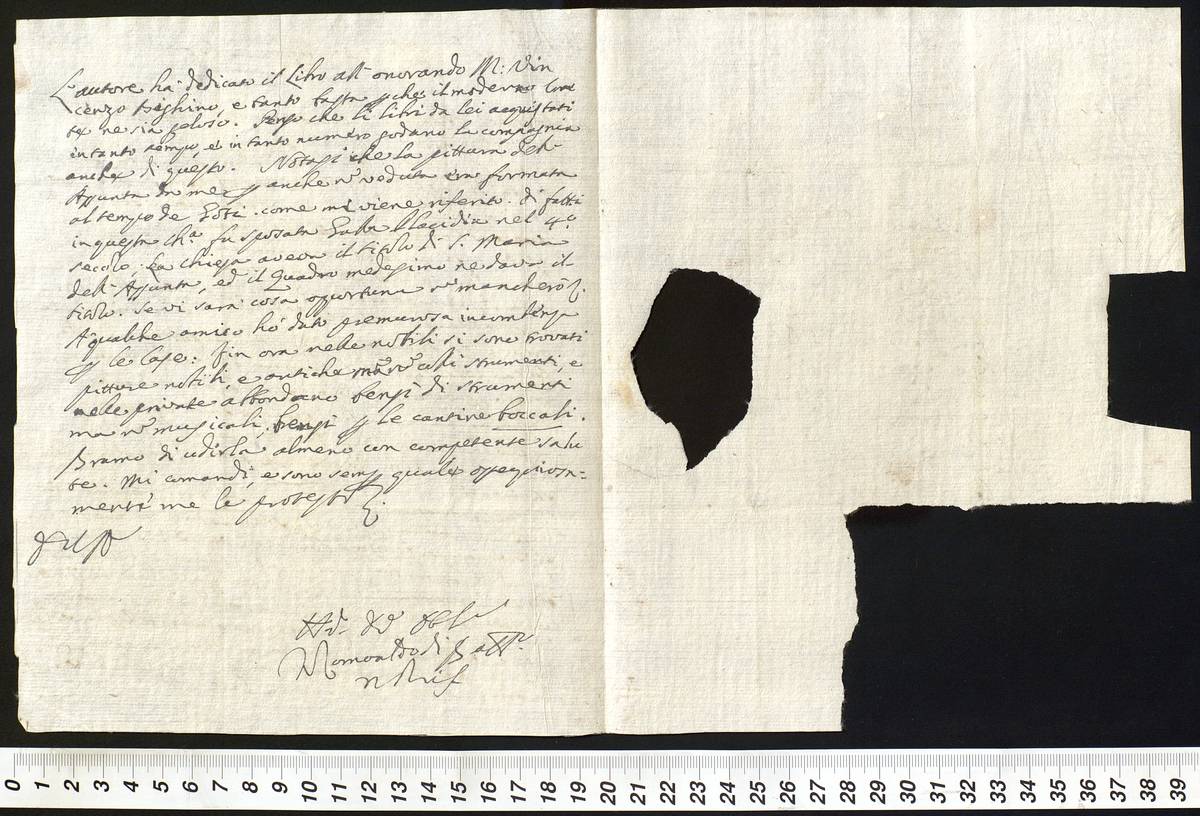 L'autore ha dedicato il Libro all' onorando M: Vin
cenzo Beghino, e tanto basta pche il moderno
te ne sia geloso. Penso che li libri da lei acquistati
in tanto tempo, et in tanto numero godano la compagnia
anche di questo. Notasi che la pittura dell'
Assunta anche nº veduta era formata
al tempo de Goti, come mi viene riferito. di fatti
in questa chª. fu sposata Galla Placidia nel 4º
secolo; la chiesa aveva il titolo di S. Maria
dell' Assunta, ed il Quadro medesimo ne dava il
titolo. Se vi sarà cosa oportuna nº mancherò
A qualche amico hò dato premurosa incombenza
p le Case: fin ora nelle nobili si sono trovati
pitture nobili, e antiche ma nº strumenti, e
nelle private abbondano bensì di strumenti
ma nº musicali, bensì p le cantine boccali.
Bramo di udirla almeno con competente salu
te. Mi comandi, e sono semp quale ossequiosa=
mente me le protesto
Romoaldo di
0 1 2 3 4 5 6 7 8 9 10 11 12 13 14 15 16 17 18 19 20 21 22 23 24 25 26 27 28 29 30 31 32 33 34 35 36 37 38 39